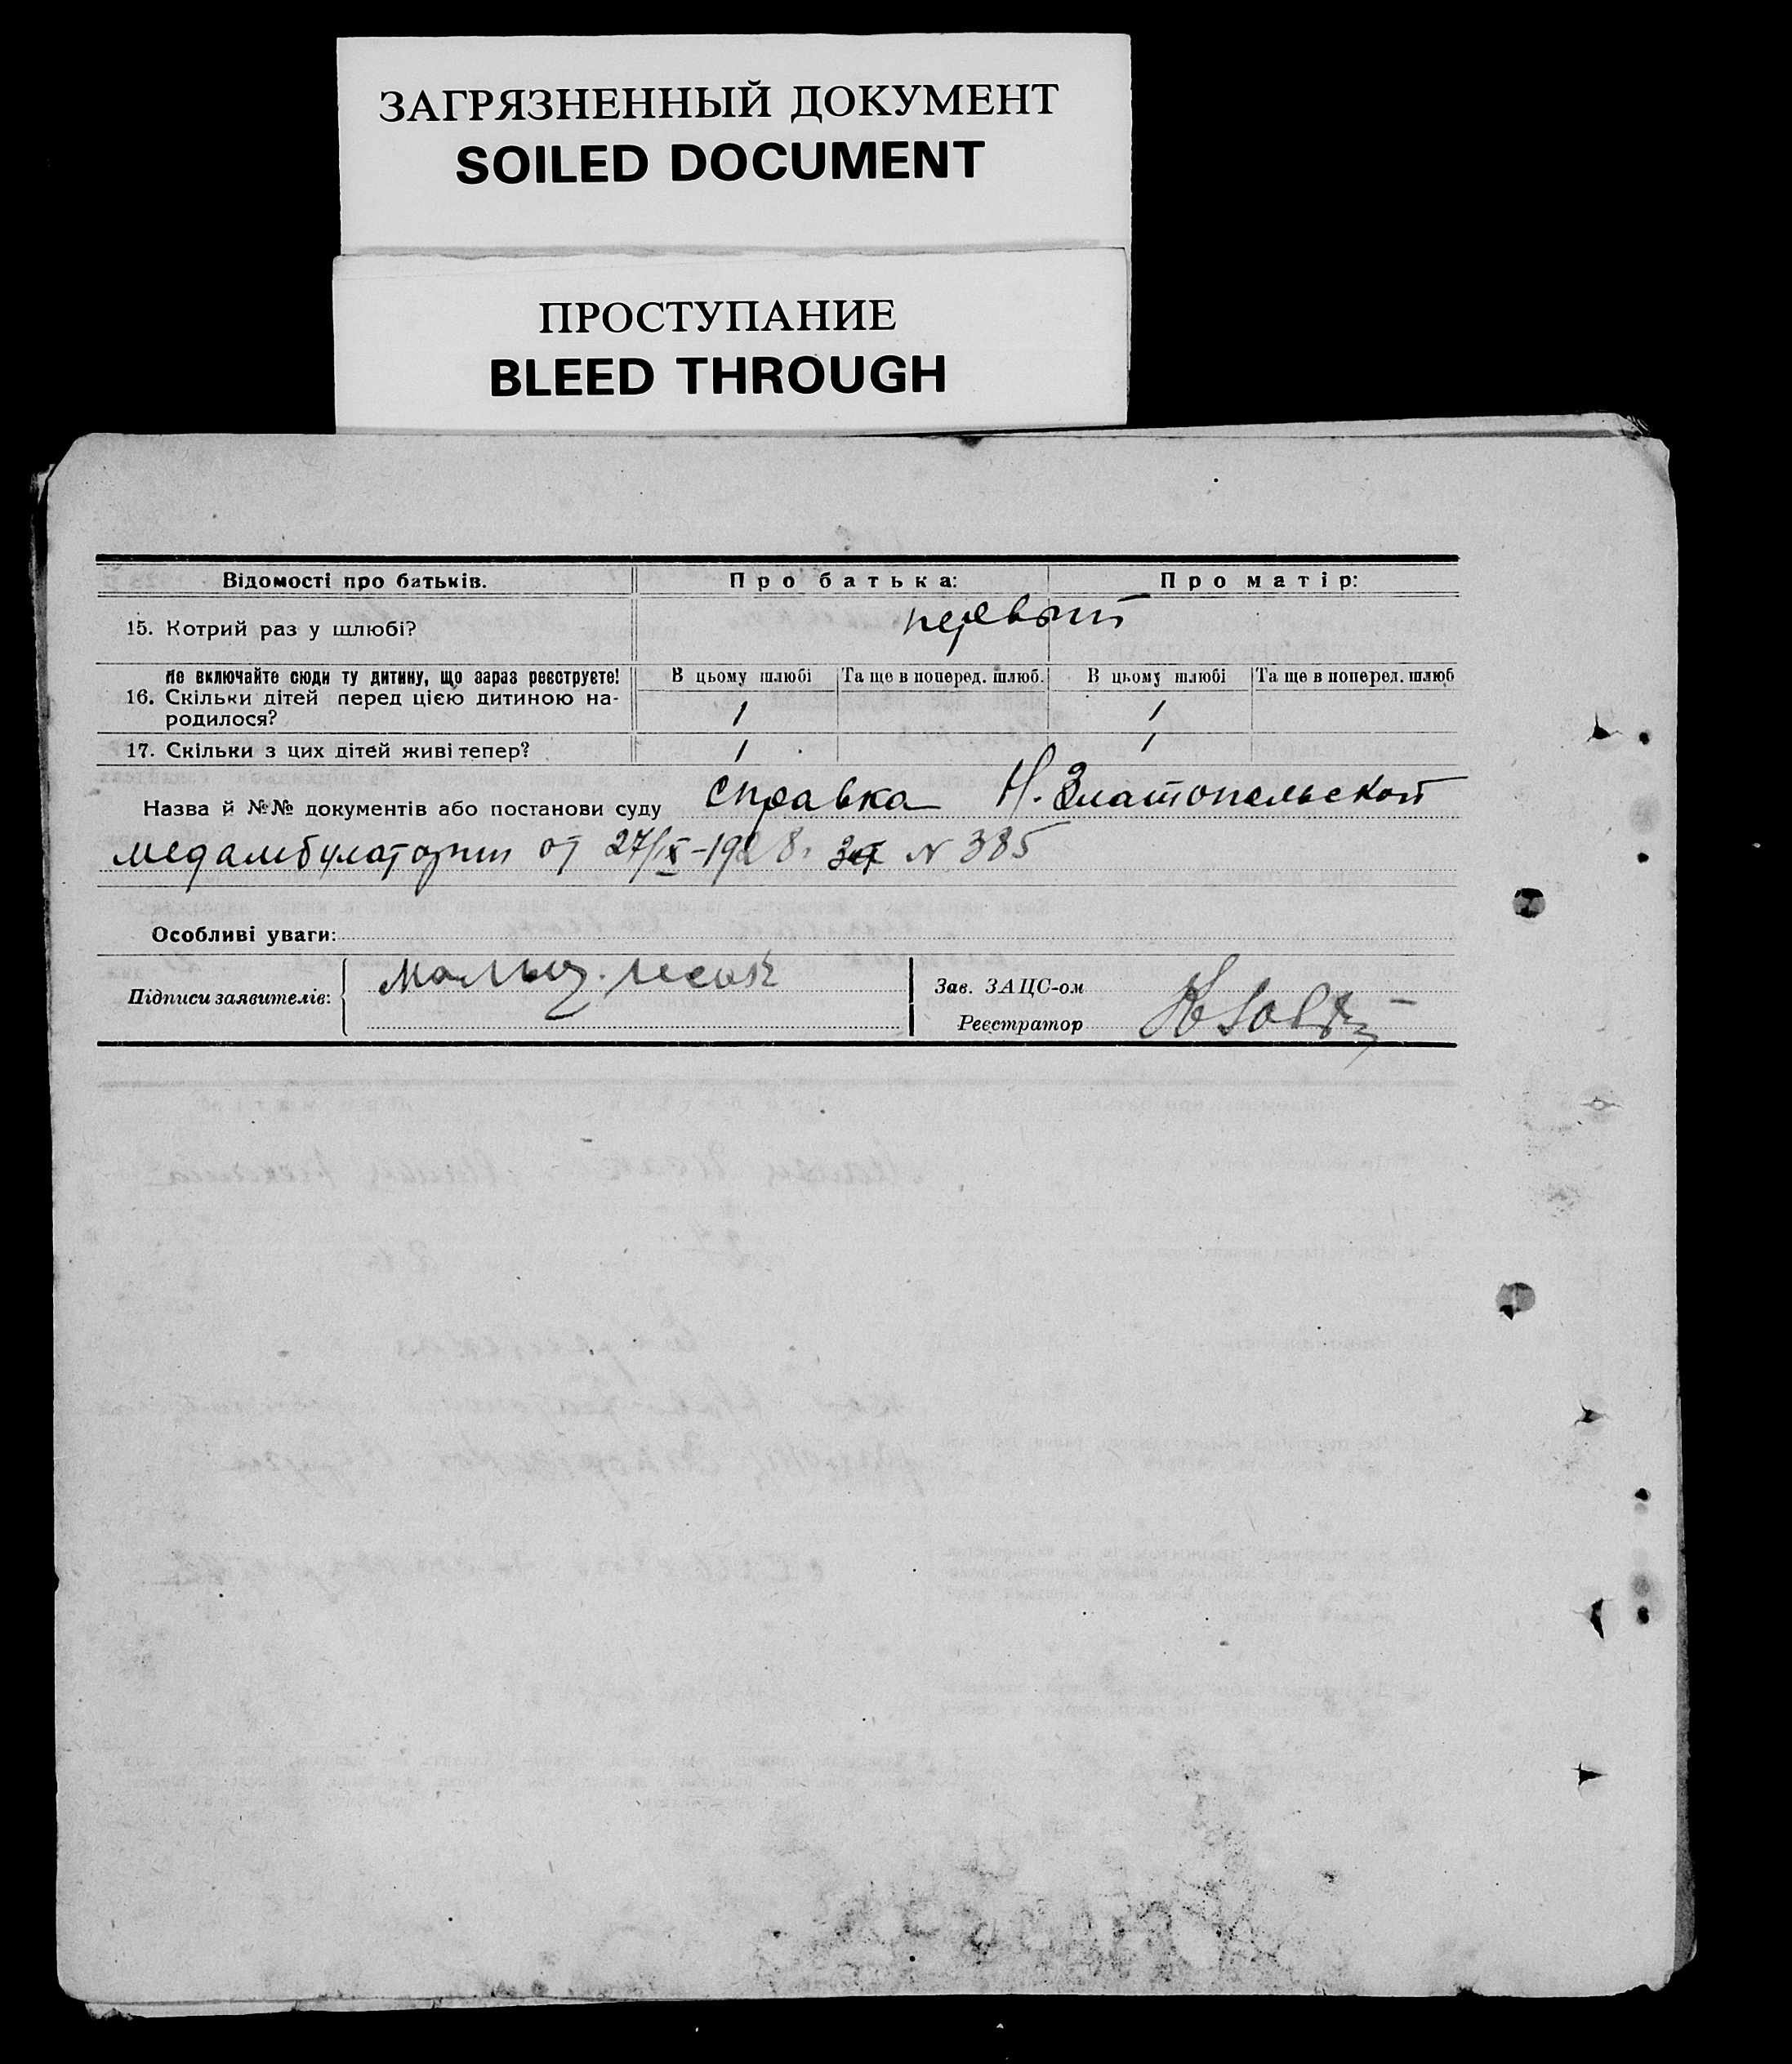 ЗАГРЯЗНЕННЫЙ ДОКУМЕНТ
SOILED DOCUMENT
ПРОСТУПАНИЕ
BLEED THROUGH
Відомості про батьків. Про батька: Про матір:
15. Котрий раз у шлюбі? первый
Не включайте сюди ту дитину, що зараз реєструєте! В цьому шлюбі Та ще в поперед. шлюб. В цьому шлюбі Та ще в поперед. шлюб
16. Скільки дітей перед цією дитиною на-
родилося? 1 1
17. Скільки з цих дітей живі тепер? 1 1
Назва й №№ документів або постанови суду справка Н. Златопольской
медамбулатории от 27/IX-1928 г. N 385
Особливі уваги:
Підписи заявителів: Зав. ЗАЦС-ом
Реєстратор